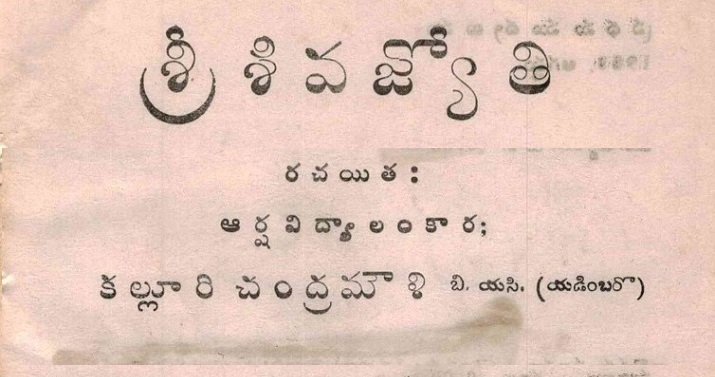 శ్రీ శివజ్యోతి
రచయిత:
ఆర్షవిద్యాలంకార;
కల్లూరి చంద్రమౌళి బి. యసి. (యడింబరొ)